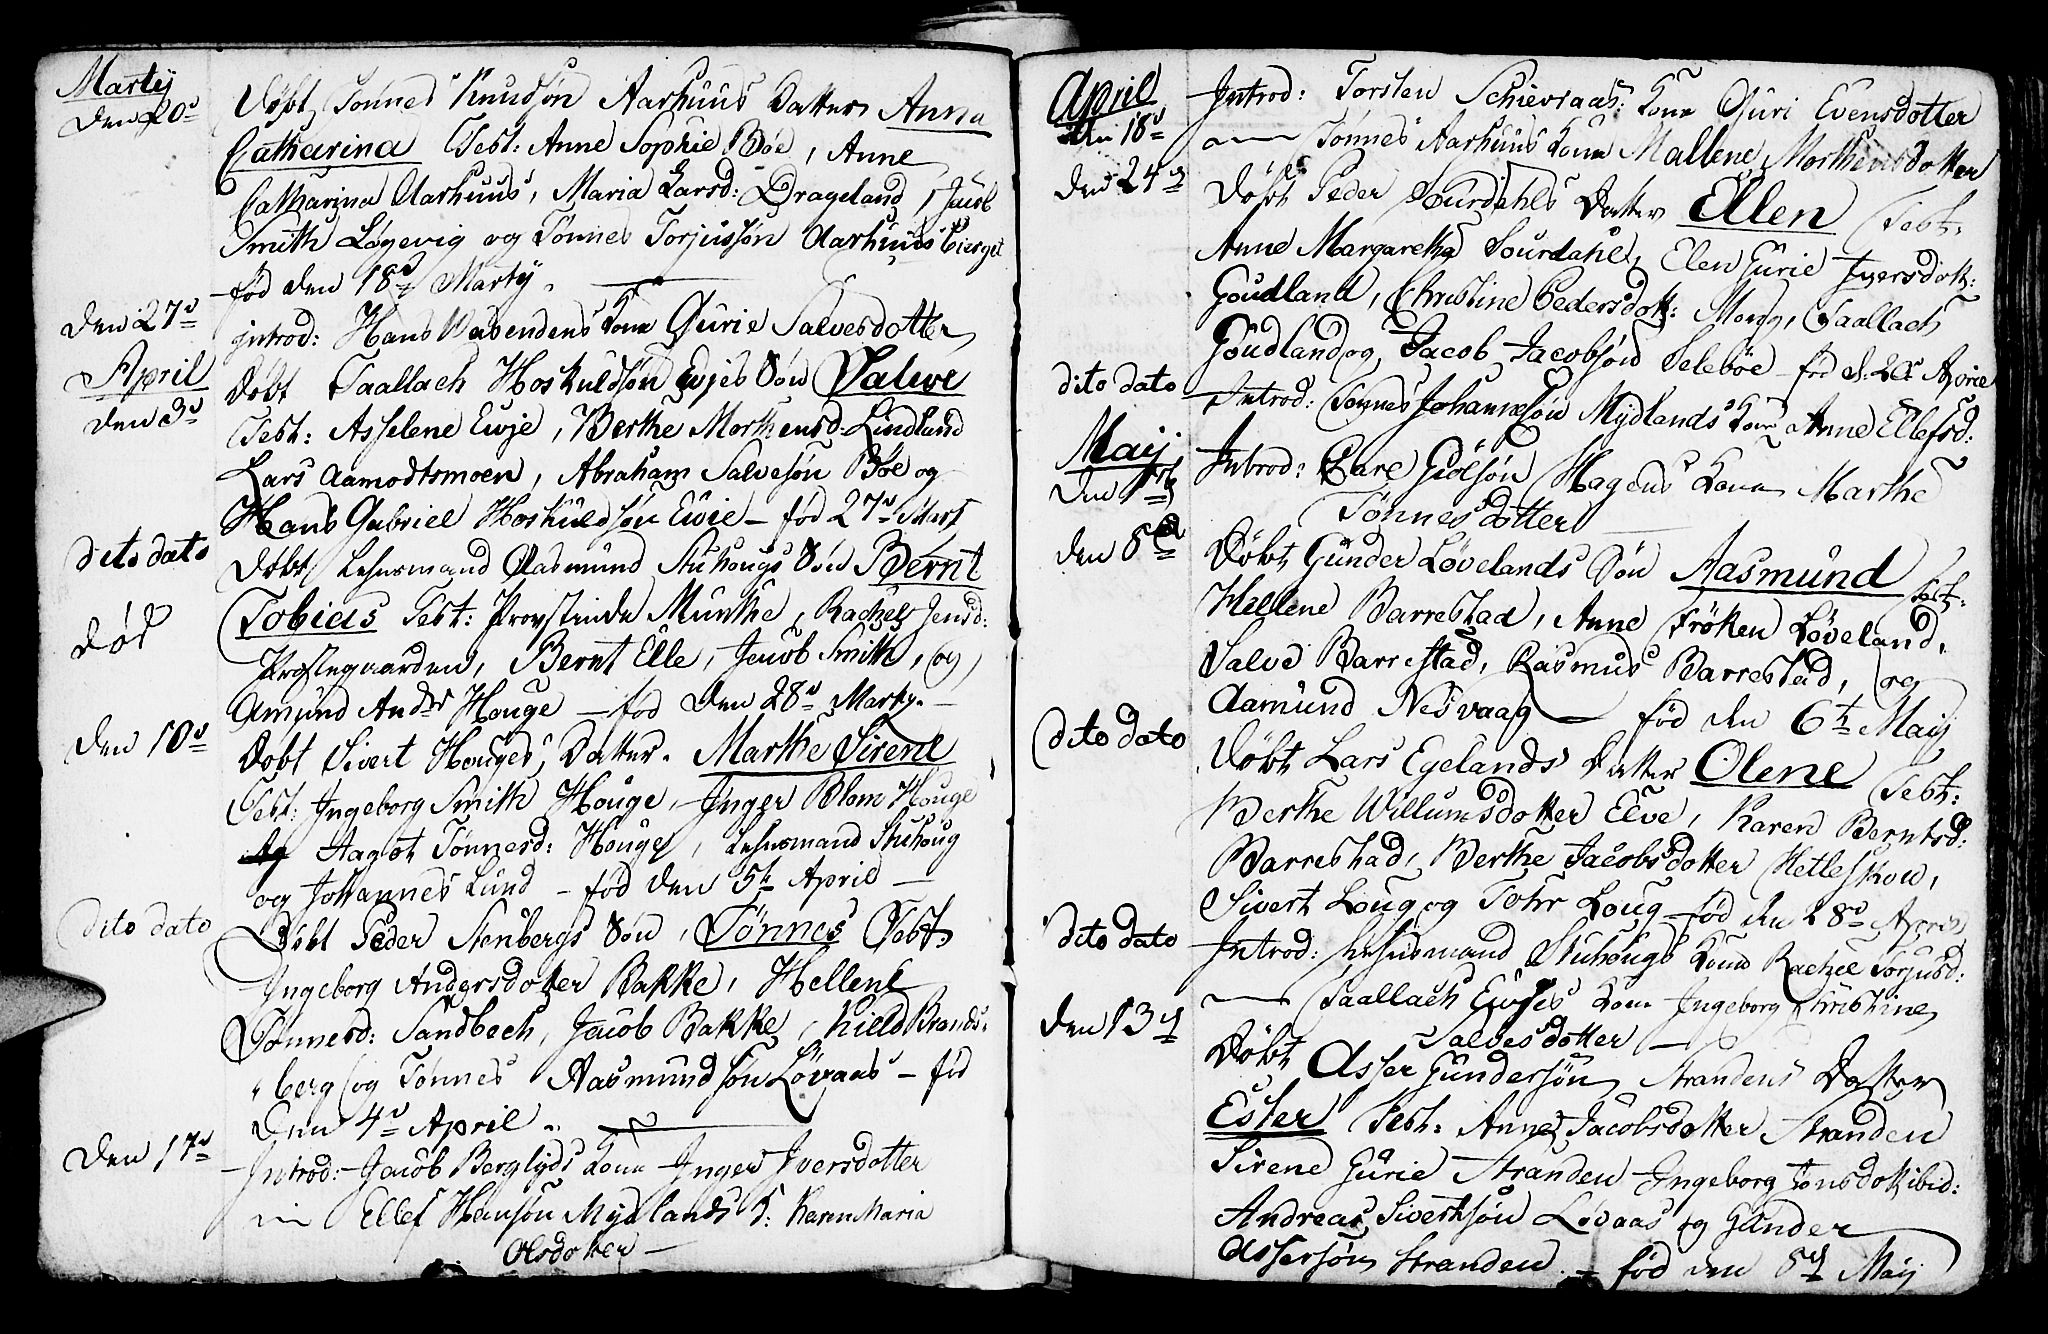 Martÿ
den 20de
Døbt Tønnes Knudsøn Aarhuus Datter Anna
Catharina Test: Anne Sophie Böe, Anne
Catharina Aarhuus, Maria Larsd: Drageland, Jacob
Smith Løgevig og Tønnes Torjussøn Aarhuus
fød den 18de Martÿ.
den 27de
introd: Hans Kone Gurie Salvesdotter
April
den 3de
Døbt Taallach Hoskuldsøn Ewjes Søn Salwe
Test: Asselene Ewje, Berthe Morthensd: Lindland
Lars Aamodtsmoen, Abraham Salvesøn Böe og
Hans Gabriel Hoskuldsøn Ewie - fød 27de Mart
dito dato
Døbt Lehnsmand Aasmund Stuhougs Søn Bernt
Tobias Test: Provstinde Munthe, Rachel Jensd:
død
Præstegaarden, Bernt Elle, Jacob Smith, og
Amund Anders Houge - fød den 28de Martÿ.
den 10de
Døbt Sivert Houges Datter. Marthe Sirene
Test: Ingeborg Smith Houge, Inger Blom Houge
Aagot Tønnesd: Houge, Lehnsmand Stuhoug
og Johannes Lund - fød den 5te April -
dito dato
Døbt Peder Stenbergs Søn, Tønnes Test:
Ingeborg Andersdotter Bakke, Hellene
Tønnesd: Sandbech, Jacob Bakke, Kield Brands-
berg og Tønnes Aasmundsøn Løvaas - fød
den 4de April.
den 17de
Introd: Jacob Berglyds Kone Inger Iversdotter
Ellef Hansøn Mydlands K: Karen Maria
Olsdotter -
April
den 18de
Introd: Torsten Schievraas: Kone Guri Evensdotter
Tønnes Aarhuus Kone Mallene Morthensdotter
den 24de
Døbt Peder Sourdahls Datter Ellen Test:
Anne Margaretha Sourdahl, Elen Gurie Iversdott:
Goudland, Christine Pedersdott: Moy, Taallach
Goudland og Jacob Jacobsøn Selebøe - fød d: April
dito dato
Introd: Tønnes Johannesøn Mydlands Kone Anne Ellefsd:
Maij
den 1ste
Introd: Carl Giølsøn Hagens Kone Marthe
Tønnesdotter
den 8de
Døbt Gunder Løvelands Søn Aasmund Test:
Hellene Barrestad, Anne Frøken Løveland,
Salve Barrestad, Rasmus Barrestad, og
Aamund Nesvaag - fød den 6te Maij
dito dato
Døbt Lars Egelands Datter Olene Test:
Berthe Willumsdotter Elve, Karen Berntsd:
Barrestad, Berthe Jacobsdotter Hetleskou,
Sivert Loug og Tohr Loug - fød den 28de April
dito dato
Introd: Lehnsmand Stuhougs Kone Rachel Torjusd:
Taallach Ewjes Kone Ingeborg Christine
Salvesdotter -
den 13de
Døbt Asser Gundersøn Strandens Datter
Ester Test: Anne Jacobsdotter Stranden
Sirene Gurie Stranden Ingeborg Tønsdott ibid:
Andreas Sivertsøn Løvaas og Gunder
Assersøn Stranden. - fød den 8de Maij